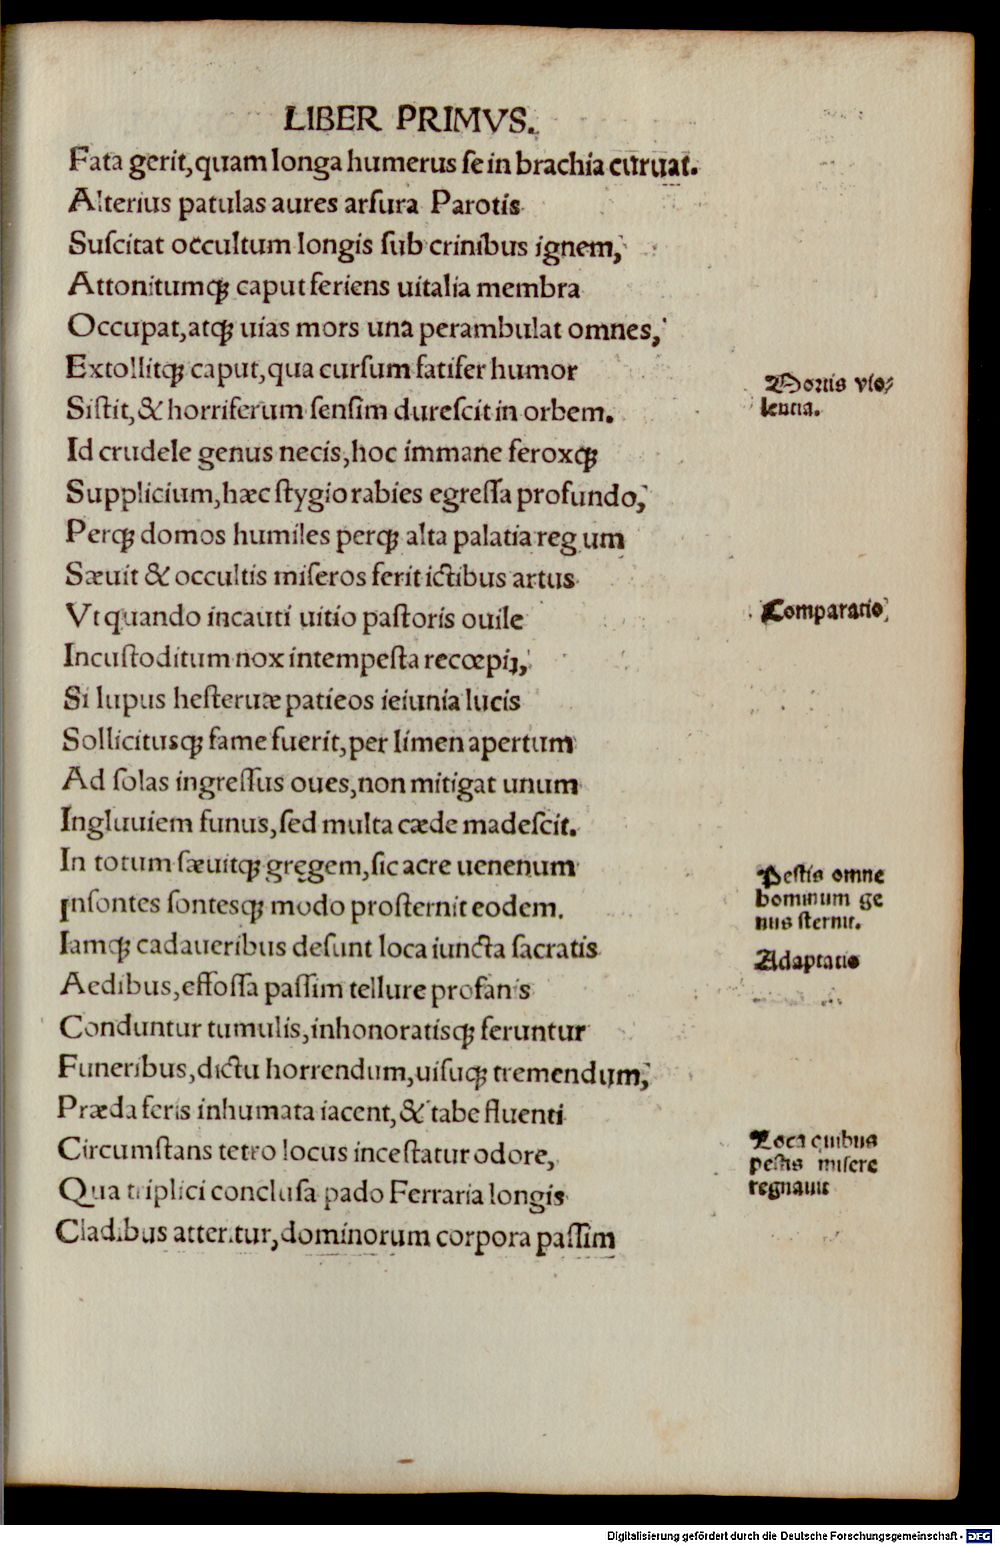 LIBER PRIMVS.
Fata gerit, quam longa humerus se in brachia curuat.
Alterius patulas aures arsura Parotis
Suscitat occultum longis sub crinibus ignem,
Attonitumqꝫ caput feriens uitalia membra
Occupat, atqꝫ uias mors una perambulat omnes,
Extollitqꝫ caput, qua cursum fatifer humor
Sistit, & horriferum sensim durescit in orbem.
Id crudele genus necis, hoc immane feroxqꝫ
Supplicium, hæc stygio rabies egressa profundo,
Perqꝫ domos humiles perqꝫ alta palatia reg um
Sæuit & occultis miseros ferit ictibus artus
Vt quando incauti uitio pastoris ouile
Incustoditum nox intempesta recœpiʒ,
Si lupus hesteruæ patieos ieiunia lucis
Sollicitusqꝫ fame fuerit, per limen apertum
Ad solas ingressus oues, non mitigat unum
Ingluuiem funus, sed multa cæde madescit.
In totum sæuitqꝫ gręgem, sic acre uenenum
Insontes sontesqꝫ modo prosternit eodem.
Iamqꝫ cadaueribus desunt loca iuncta sacratis
Aedibus, effossa passim tellure profanis
Conduntur tumulis, inhonoratisqꝫ feruntur
Funeribus, dictu horrendum, uisuqꝫ tremendum,
Præda feris inhumata iacent, & tabe fluenti
Circumstans tetro locus incestatur odore,
Qua triplici conclusa pado Ferraria longis
Cladibus atteritur, dominorum corpora passim
Mortis vio⸗
lentia.
Comparatio
Pestis omne
hominum ge
nus sternit.
Adaptatio
Loca quibus
pestis misere
regnauit
Digitalisierung gefördert durch die Deutsche Forschungsgemeinschaft - DFG